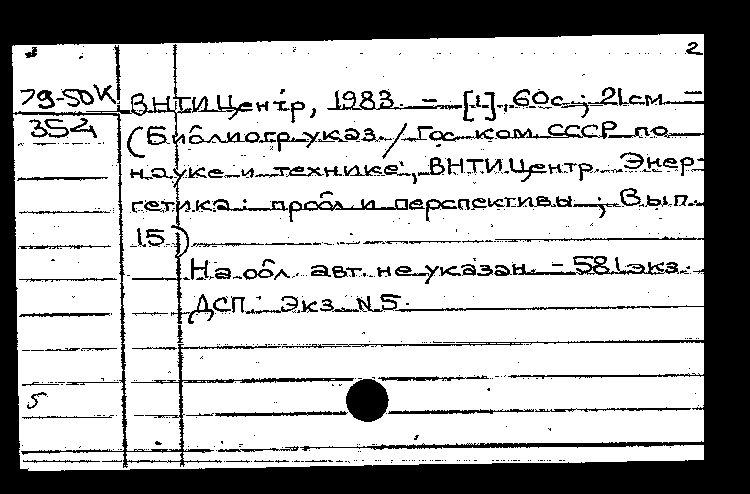 2
79-50К ВНТИЦентр, 1983. – [1], 60с.; 21см –
354 (Библиогр указ. / Гос ком. СССР по
науке и технике, ВНТИЦентр. Энер-
гетика: пробл и перспективы; Вып.
15)
На обл. авт. не указан. – 581 экз.
ДСП. Экз. N5.
5